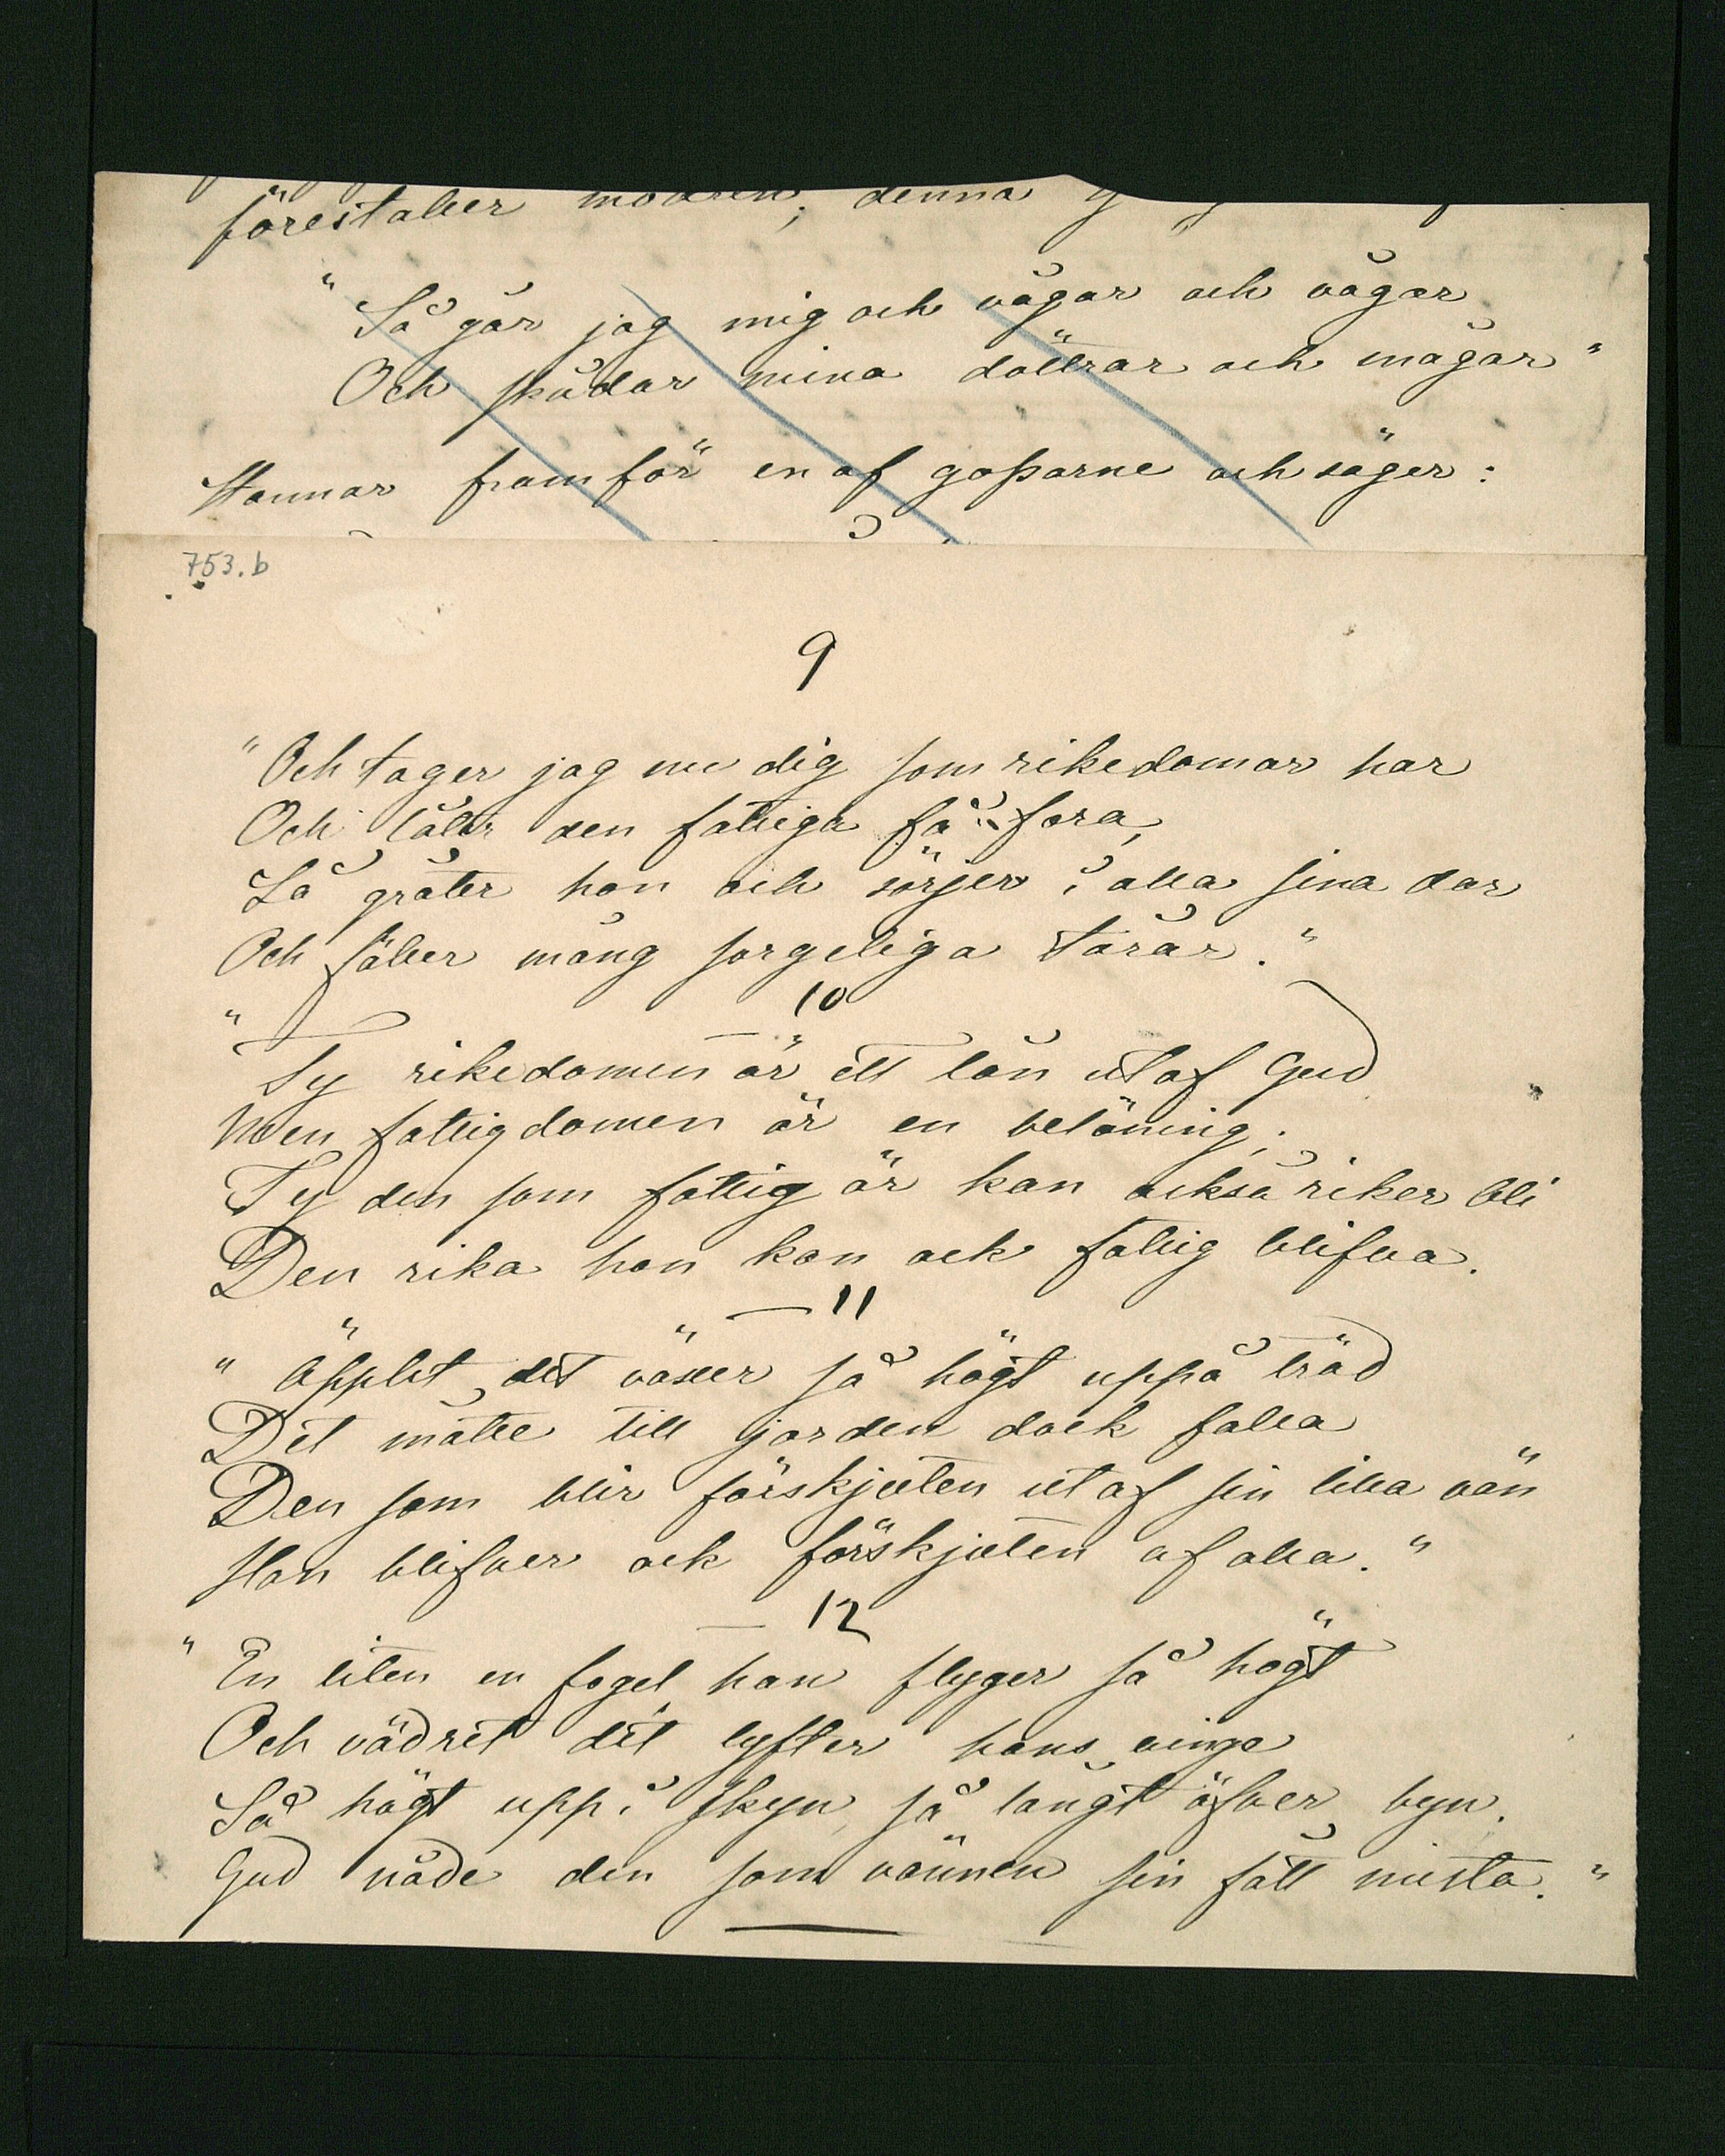 förestaller modren; denna
"Så går jag mig och vågar och vågar
Och skådar mina döttrar och mågar"
stannar framför en af gossarne och säger:
753.b
9
"Och tager jag nu dig som rikedomar har
Och låter den fattiga få fara,
Så gråter hon och sörjer i alla sina dar
Och fäller mång sorgeliga tårar."
10
"Ty rikedomen är ett lån utaf Gud
Men fattigdomen är en belöning;
Ty den som fattig är kan också riker bli
Den rika han kan ock fattig blifva.
11
"Äpplet det växer så högt uppå träd
Det måtte till jorden dock falla
Den som blir förskjuten utaf sin lilla vän
Han blifver ock förskjuten af alla."
12
"En liten en fogel han flyger så högt
Och vädret det lyfter hans vinge
Så högt upp i skyn, så långt öfver byn.
Gud nåde den som vännen sin fått mista."